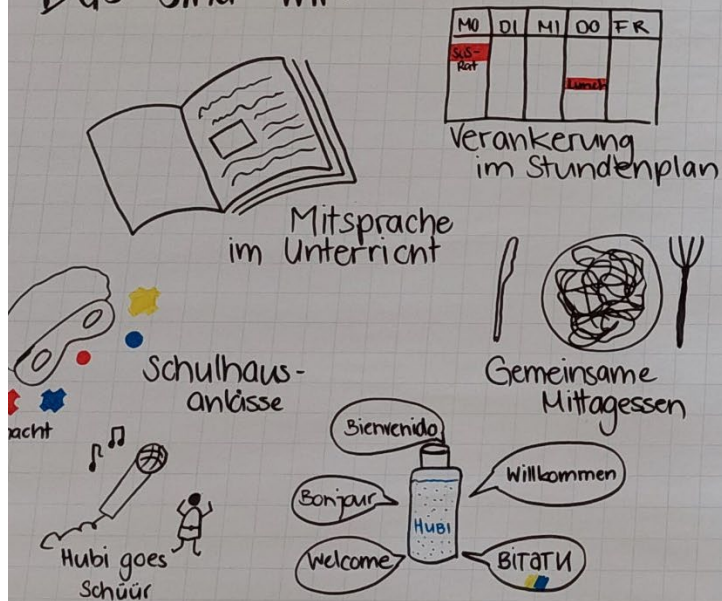 Das sind wir
MO DI MI DO FR
SuS-
Rat
Lunch
Verankerung
im Stundenplan
Mitsprache
im Unterricht
Schulhaus-
anlässe
Gemeinsame
Mittagessen
acht
Hubi goes
Schüür
Bienvenido
Willkommen
Bonjour
HUBI
Welcome
ВІТАТИ